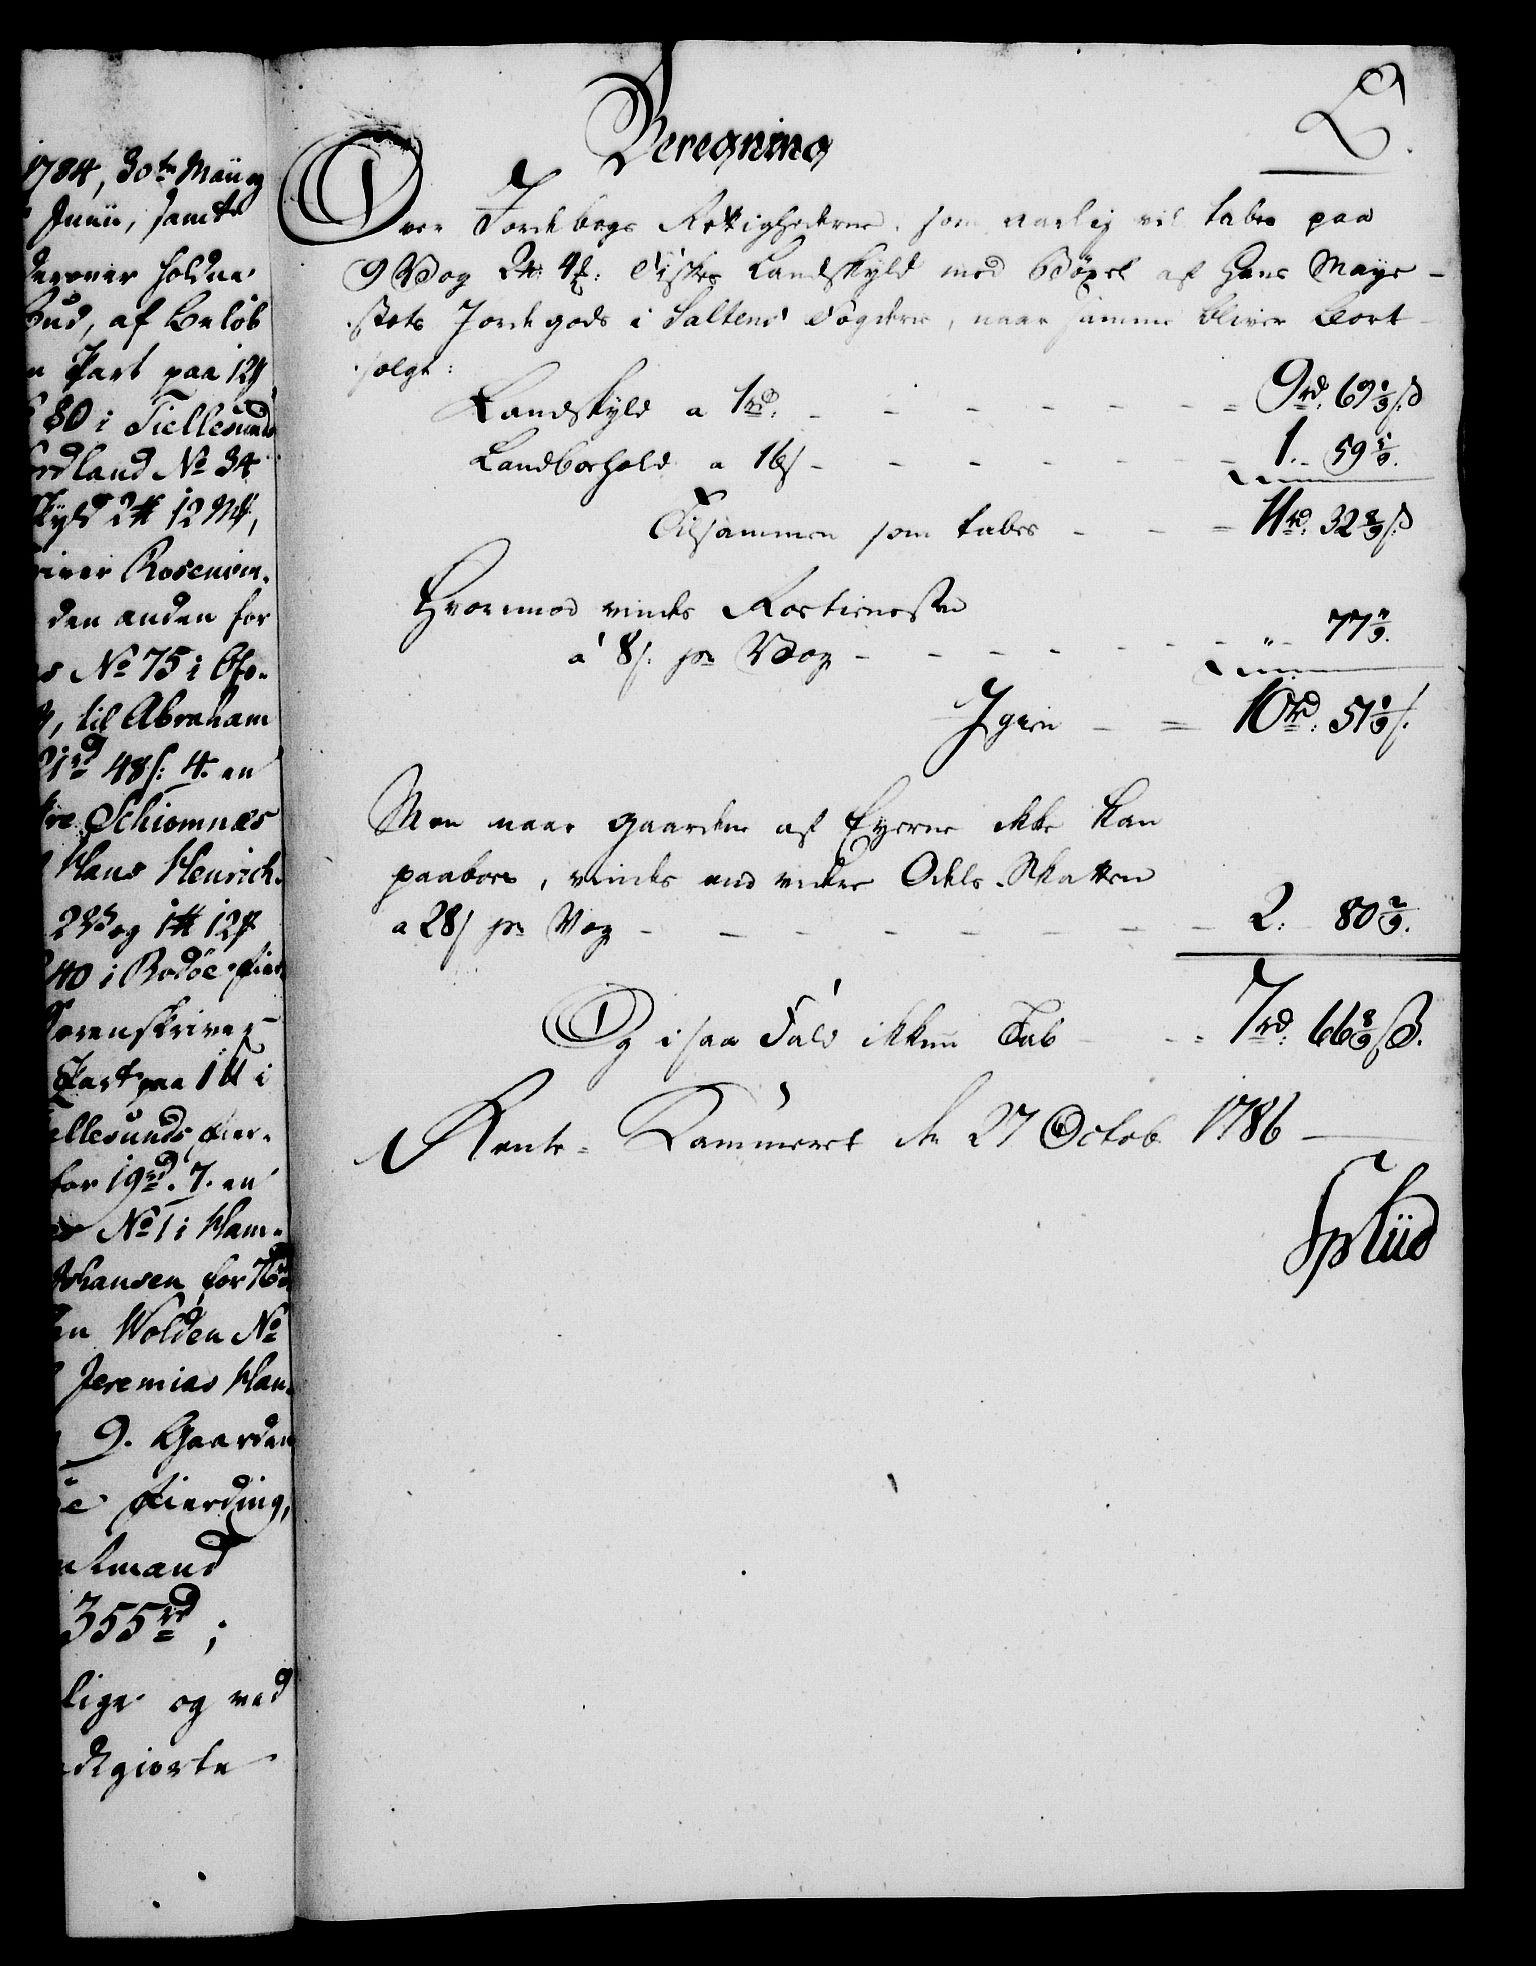 1784, 30te Maii og
Junii, samt
derover holdne
Bud, af Beløb
Part paa 12
80 i Tiellesunds
ordland No 34
Skyld 2 12 M
river Rosenvin-
den anden for
No 75 i Ofo-
til Abraham
rd 48 s: 4. en
Schiomnæs
Hans Henrich-
2 Vog 1 12
40 i Bodøe fier
Sorenskriver
Part paa 1 i
ellesunds fier-
for 19 rd. 7. en
No 1 i Ham-
for 76
Wolden No
Jeremias Han-
9. Gaarden
fierding,
Amand
355 rd;
lige og ved
giorte
L.
Beregning
Over Jordebogs Rettighederne, som aarlig vil tabes paa
9 Vog 2 4 : Fiskes Landskyld med Böxel af Hans Maye-
stets Jordegods i Saltens Fogderie, naar samme bliver bort-
solgt:
Landskyld a 1 rd. - - - - - - 9 rd. 69 1/3 s
Landborhold a 16 s - - - - - - 1. 59 5/9.
Tilsammen som tabes - - 11 rd. 32 8/9 s
Hvorimod vindes Rostienesten
à 8 s. pr Vog - - - - - - " 77 7/9.
Igien - - 10 rd. 51 1/9 s.
Men naar Gaardene af Eyerne ikke kan
paaboes, vindes end videre Odels-Skatten
a 28 s pr Vog - - - - - - 2. 80 2/9.
Og i saa Fald ikkun Tab - - 7 rd. 66 8/9 s.
Rente-Kammeret den 27 Octob. 1786